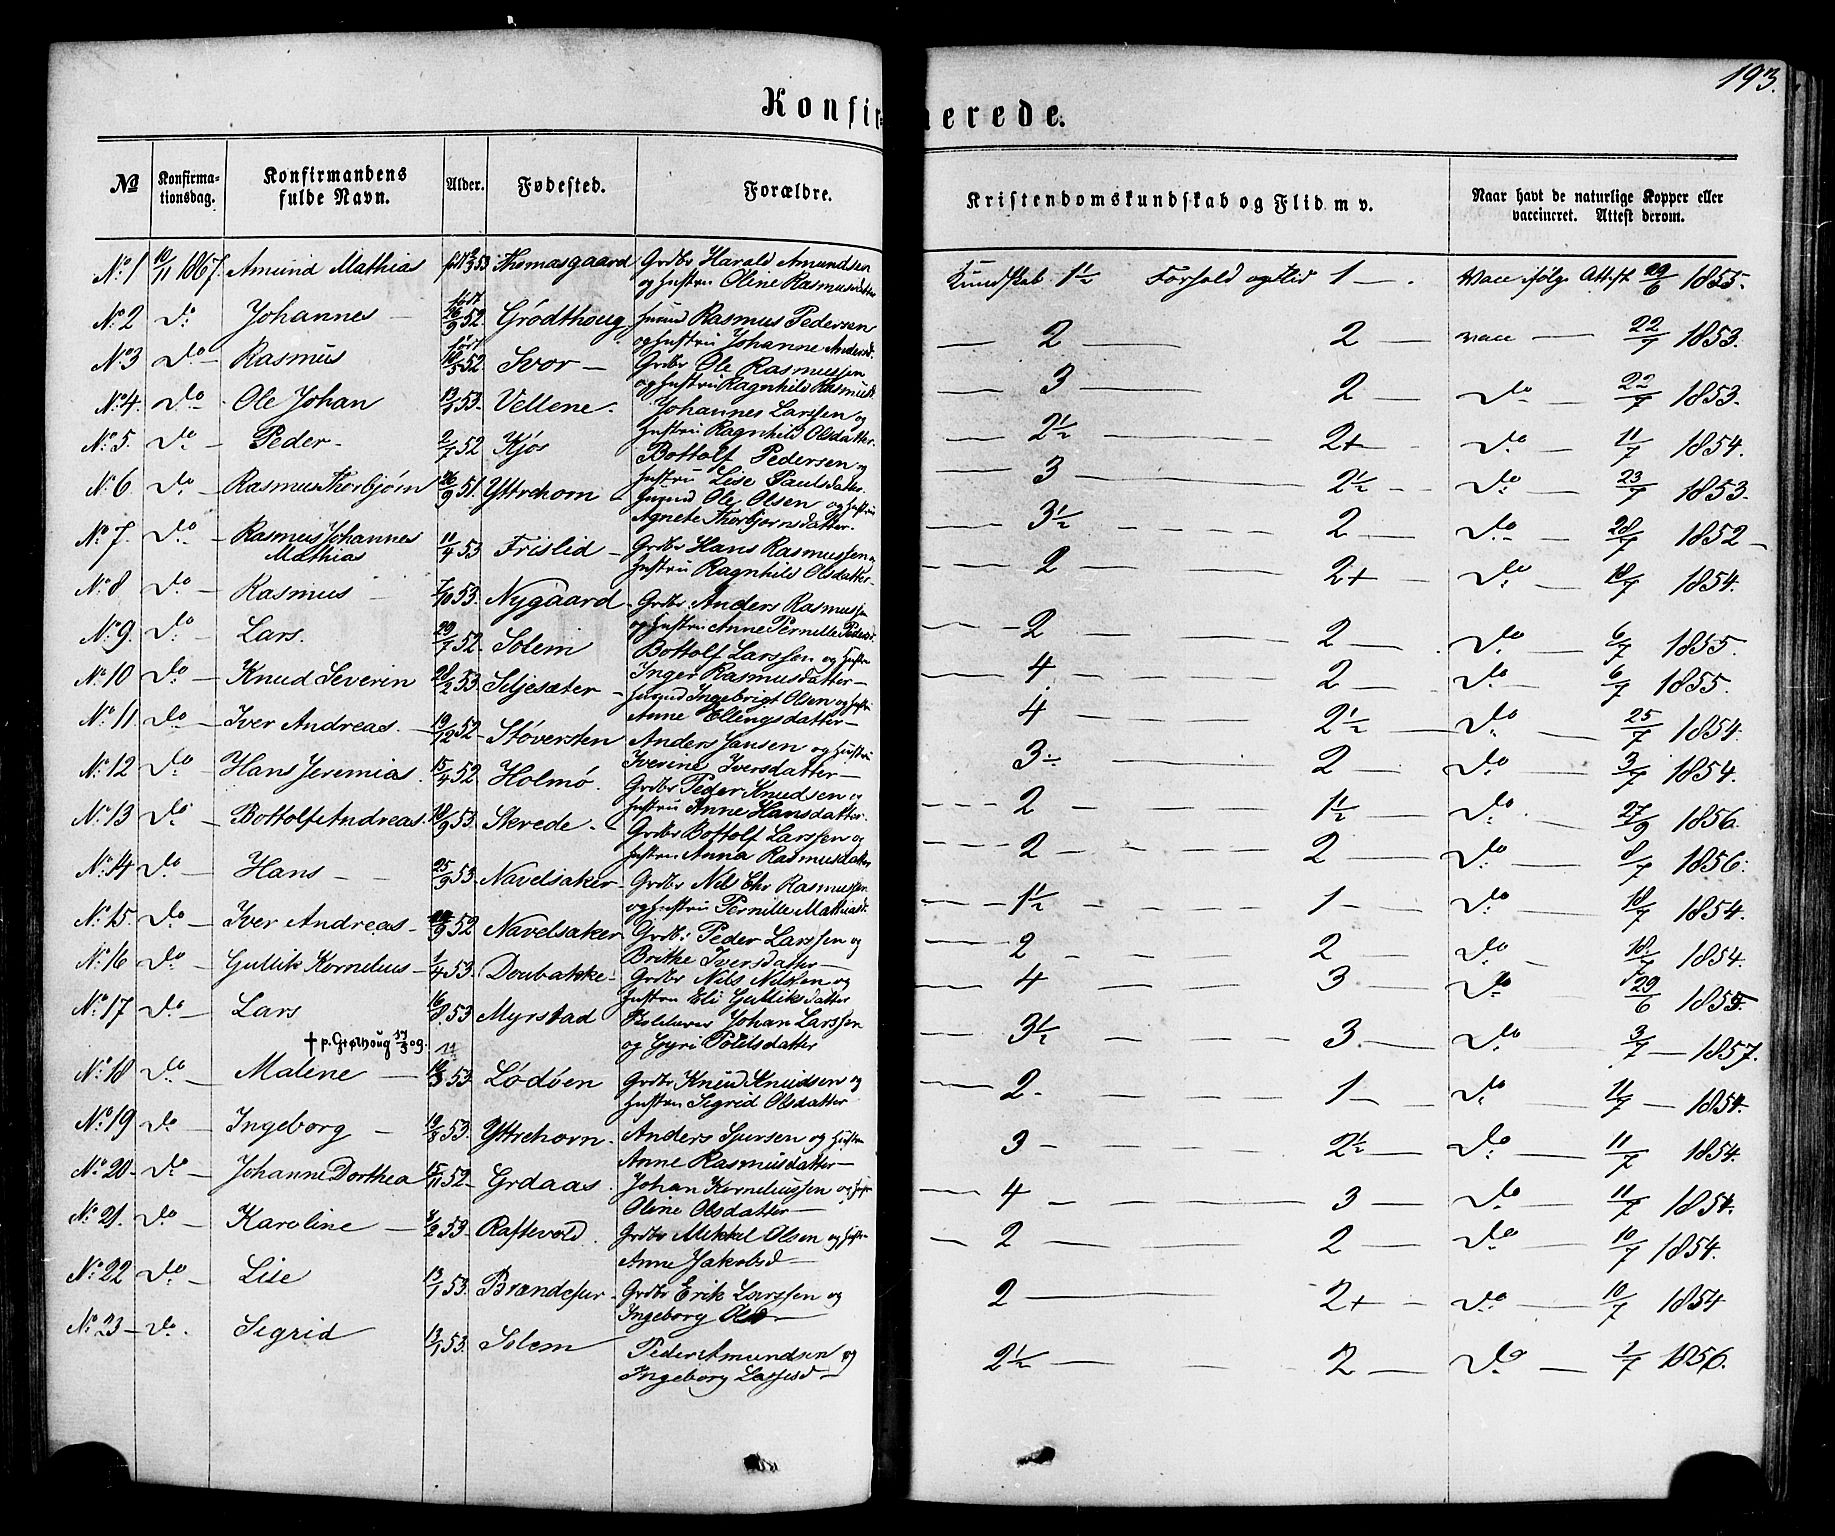 193.
Konfirmerede.
No
Konfirma-
tionsdag.
Konfirmandens
fulde Navn.
Alder.
Fødested.
Forældre.
Kristendomskundskab og Flid m v.
Naar havt de naturlige Kopper eller
vaccineret. Attest derom.
No 1 10/11 1867. Amund Mathias 53 Thomasgaard Grdbr Harald Amundsen
og Hustru Oline Rasmusdatter
Kundskab 1½ Forhold og Flid 1 — . Vacc ifølge Attest 29/6 1855.
No 2 do Johannes — født 26/9 52. Grodthoug Husmd Rasmus Pedersen
og Hustru Johanne Andersd.
— 2 — 2 — vacc — 22/7 1853.
No 3 do — Rasmus født 52 Svor — Grdbr Ole Rasmussen
og Hustru Ragnhild Rasmusd.
— 3 — 2 — do — 22/7 1853.
No 4. do — Ole Johan 53. Vellene. Johannes Larssen og
Hustru Ragnhild Olsdatter
— 2½ — 2+ — do — 11/7 1854.
No 5. do — Peder — 2/7 52 Kjøs Bottolf Pedersen og
Hustru Lise Paulsdatter.
— 3 — 2½ — do — 23/7 1853.
No 6. do — Rasmus Thorbjørn 26/9 51. Yttrehorn Husmd Ole Olsen og Hustru
Agnete Thorbjornsdatter.
— 3½ — 2 — do — 28/7 1852 —
No 7. do — Rasmus Johannes
Mathias 11/4 53 Frislid — Grdbr Hans Rasmussen og
Hustru Ragnhild Olsdatter —
— 2 — 2+ — do — 18/7 1854.
No 8 do — Rasmus 7/10 53. Nygaard — Grdbr. Anders Rasmussen
og Hustru Anne Pernille Pedersd.
— 2 — 2 — do — 6/7 1855.
No 9. do — Lars. 29/7 52. Solem Bottolf Larssen og Hustru
Inger Rasmusdatter —
— 4 — 2 — do — 6/7 1855.
No 10 do — Knud Severin 28/2 53 Seljesæter — Husmd Ingebrigt Olsen og Hustru
Anne Ellingsdatter —
— 4 — 2½ — do — 25/7 1854.
No 11 do — Iver Andreas. — 19/12 52 — Støversten Anders Jansen og Hustru
Iverine Iversdatter —
— 3 — 2 — do — 3/7 1854.
No 12 do — Hans Jeremias 15/4 52 Holmø. Grdbr Peder Knudsen og
Hustru Anne Hansdatter.
— 2 — 1½ — do — 27/9 1856.
No 13 do — Bottolf Andreas. 18/9 53. Skrede — Grdbr Bottolf Larssen og
Hustru Anna Rasmusdatter
— 2 — 2 — do — 8/7 1856.
No 14 do — Hans — — 25/9 53. Navelsaker — Grdbr Nils Chr Rasmussen
og Hustru Pernille Mathiasd.
— 1½ — 1 — do — 18/7 1854.
No 15. do — Iver Andreas — 52 Navelsaker Grdbr: Peder Larssen og
Brithe Iversdatter —
— 2 — 2 — do — 18/7 1854.
No 16 do — Gullik Kornelius — 1/4 53. Doubakke — Grdbr Nils Nilssen og
Hustru Eli Gulliksdatter
— 4 — 3 — do — 29/6 1855.
No 17 do — Lars 16/8 53 Myrstad Johan Larssen
og Gyri Povelsdatter
— 3½ — 3. — do — 3/7 — 1857.
† p. Grothoug 17/3 09.
No 18 do — Malene — 53. Lødøen Grdbr Knud Knudsen og
Hustru Sigrid Olsdatter
— 2 — 1 — do — 11/7 — 1854.
No 19 do — Ingeborg — 53. Yttrehorn. Anders Sjursen og Hustru
Anne Rasmusdatter —
3 — 2½ — do — 11/7 1854.
No 20 — do — Johanne Dorthea 15/11 52 — Grdaas. Johan Korneliussen og Hustru
Oline Olsdatter —
— 4 — 3 — do — 11/7 1854.
No 21. do — Karoline — 53. Raftevold. Grdbr Mikkel Olsen og Hustru
Anne Jakobsd —
— 2 — 2 — do — 10/7 1854.
No 22 do — Lise 13/1 53. Brandesur — Grdbr Erik Larssen og
Ingeborg Olsd —
2 — 2+ — do — 10/7 1854
No 23 — do. Sigrid 13/1 53. Solem Peder Amundsen og
Ingeborg Lassesd —
2½ — 2 — do — 1856.